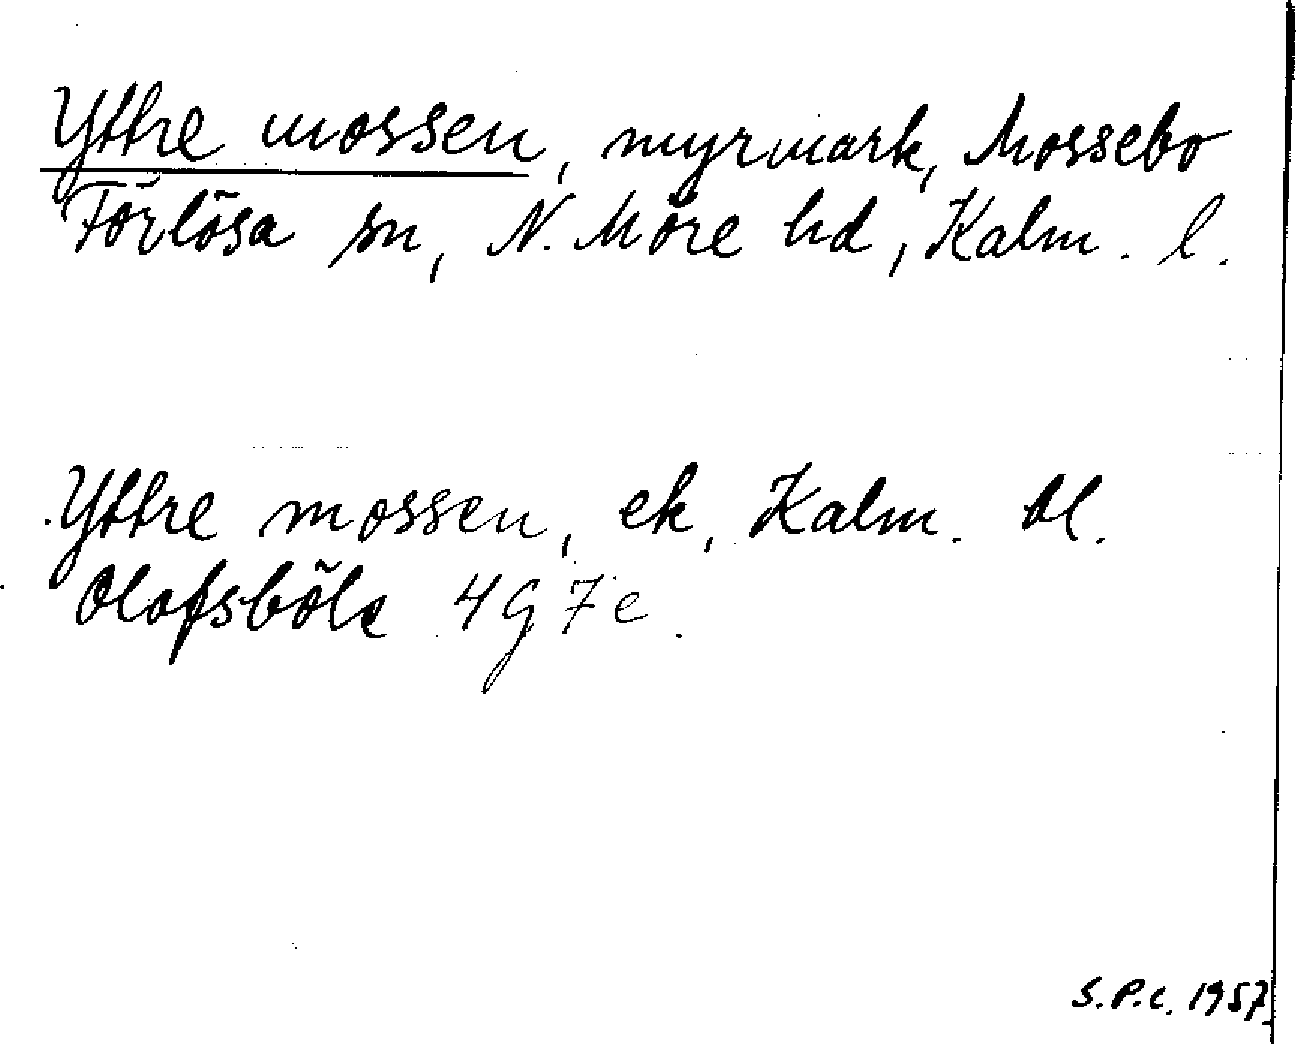 Yttre mossen, myrmark, Mossebo
Förlösa sn, N. Möre hd, Kalm. l.
Yttre mossen, ek, Kalm. bl.
Olofsböle 4G7e.
S.P.C. 1957